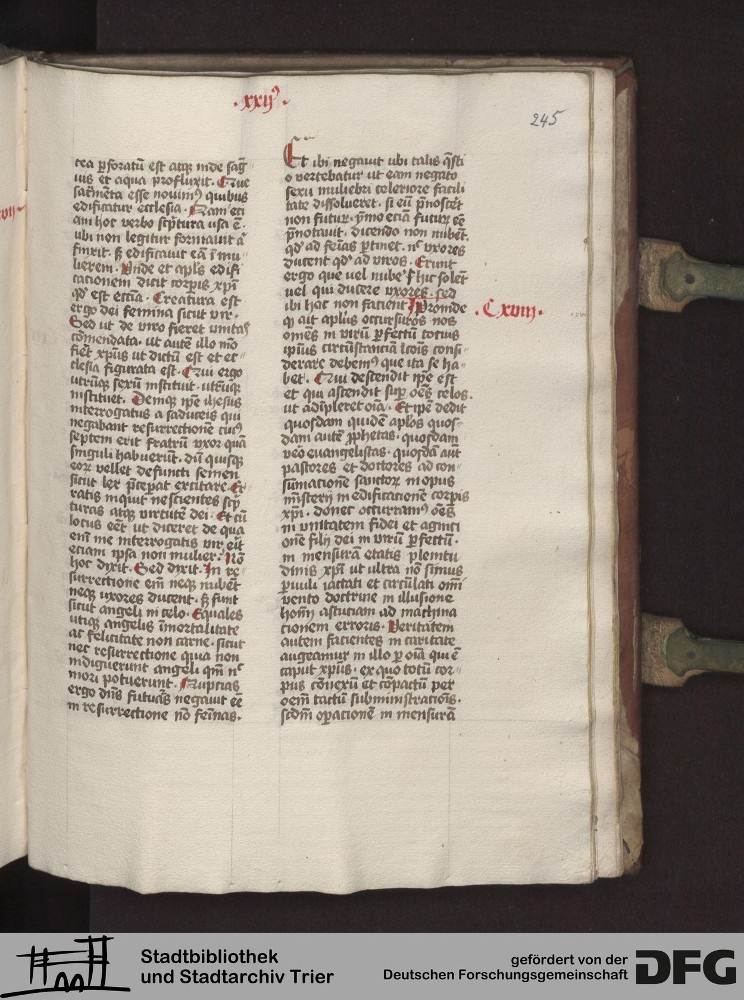 ·xxijꝰ·
245
tea ꝑforatū est atqꝫ inde sāg
uis et aqua profluxit. Que
sacr̄menta esse nouimꝰ quibus
edificatur ecclesia. Nam eti
am hoc verbo scp̄tura usa ē.
ubi non legitur formauit aͭ
finxit. sꝫ edificauit eā ī mu
lierem. Vnde et apl̄s edifi
cationem dicit corpis xp̄i
qd̓ est ecc̄ia. Creatura est
ergo dei femina sicut vir.
Sed ut de viro fieret unitas
comendata. ut autē illo mō
fieret xp̄us ut dictū est et ec
clesia figurata est. Qui ergo
utrūqꝫ sexū instituit. utrūqꝫ
instituet. Deniqꝫ ip̄e ihesus
interrogatus a saduceis qui
negabant resurrectionē cuiꝰ
septem erit fratrū vxor quā
singuli habuerūt. dū quisqꝫ
eoꝝ vellet defuncti semen
sicut lex p̄cepat excitare. Er
ratis inquit nescientes scp̄
turas atqꝫ virtutē dei. Et cū
locus eēt ut diceret de qua
enī me interrogatis vir erit
eciam ipsa non mulier. Nō
hoc dixit. Sed dixit. In re
surrectione em̄ neqꝫ nubēt
neqꝫ vxores ducent. sꝫ sunt
sicut angeli in celo. Equales
utiqꝫ angelis īmortalitate
ac felicitate non carne. sicut
nec resurrectione quia non
indiguerunt angeli qm̄ nͨ
mori potuerunt. Nuptias
ergo dn̄s futuras negauit eē
in resurrectione nō feīnas.
Et ibi negauit ubi talis q̄sti
o vertebatur ut eam negato
sexu muliebri celeriore facili
tate dissolueret. si eū p̄nosceret
non futur. ymo eciā futur eē
p̄notauit. dicendo non nubent.
qd̓ ad feīas ꝑtinet. nͨ vxores
ducent qd̓ ad viros. Erunt
ergo que uel nube͛ hic solēt
uel qui ducere vxores. sed
ibi hoc non facient. Proinde
·Cxviij·
qꝫ ait apl̄us occursuros nos
omēs in virū ꝑfectū totius
ip̄ius circūstanciā
derare debemꝰ que ita se ha
bet. Qui descendit ip̄e est
et qui ascendit suꝑ oēs celos.
ut adīpleret oīa. Et ip̄e dedit
quosdam quidē apl̄os quos
dam autē ꝓphetas. quosdam
vēo euuangelistas. quosdā autē
pastores et doctores ad con
sūmacionē sanctoꝝ in opus
mīsterij in edificacionē corpis
xp̄i. donec occurramꝰ oēs
in unitatem fidei et agniti
onē filij dei in virū ꝑfectū.
in mensurā etatis plenitu
dinis xp̄i ut ultra nō simus
ꝑuuli iactati et circūlati omī
vento doctrine in illusione
homī astuciam ad machina
tionem erroris. Veritatem
autem facientes in caritate
augeamur in illo ꝑ oīa qui ē
caput xp̄us. ex quo totū cor
pus cōnexū et cōpactū per
oem̄ tactū subministracōis.
scd̄m oꝑacionē in mensurā
Stadtbibliothek
und Stadtarchiv Trier
gefördert von der
Deutschen Forschungsgemeinschaft
DFG